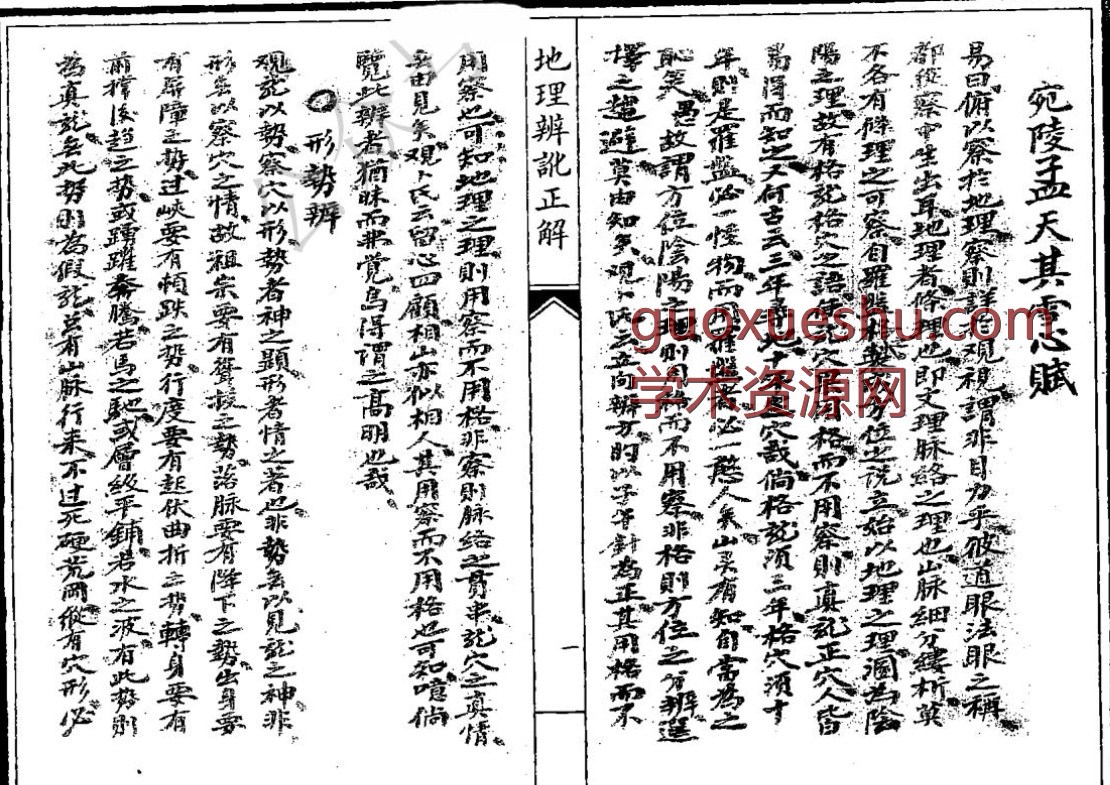 宛陵孟天其雪心賦
易曰俯以察於地理察則詳於觀視謂非目力乎彼道眼法眼之稱
都從察中生出耳地理者條理也即文理脉絡之理也山脉細分縷析莫
不各有條理之可察自羅經方位之說立始以地理之理認為陰
陽之理故有格龍格穴之語使龍穴用格而不用察則真龍正穴人皆
易得而知之又何古云三年尋地十年穴哉倘格龍須三年格穴須十
年則是羅盤必一怪物而用羅盤者必一憨人矣山灵有知自當為之
恥笑愚故謂方位陰陽之理則用格而不用察非格則方位之分辨選
擇之趨避莫由知矣觀卜氏云立向辨方的以子午針為正其用格而不
地理辨訛正解
一
用察也可知地理之理則用察而不用格非察則脉絡之貫串龍穴之真情
無由見矣觀卜氏云留心四顧相山亦似相人其用察而不用格也可知噫倘
覽此辨者猶昧而弗覚烏得謂之高明也哉
形勢辨
觀龍以勢察穴以形勢者神之顯形者情之著也非勢無以見龍之神非
形無以察穴之情故祖宗要有聳拔之勢落脉要有降下之勢出身要
有屏障之勢過峽要有頓跌之勢行度要有起伏曲折之勢轉身要有
前撑後趕之勢或踴躍奔騰若馬之馳或層級平鋪若水之波有此勢則
為真龍無此勢則為假龍若有山脉行来不过死硬荒岡縱有穴形必
guoxueshu.com
学术资源网